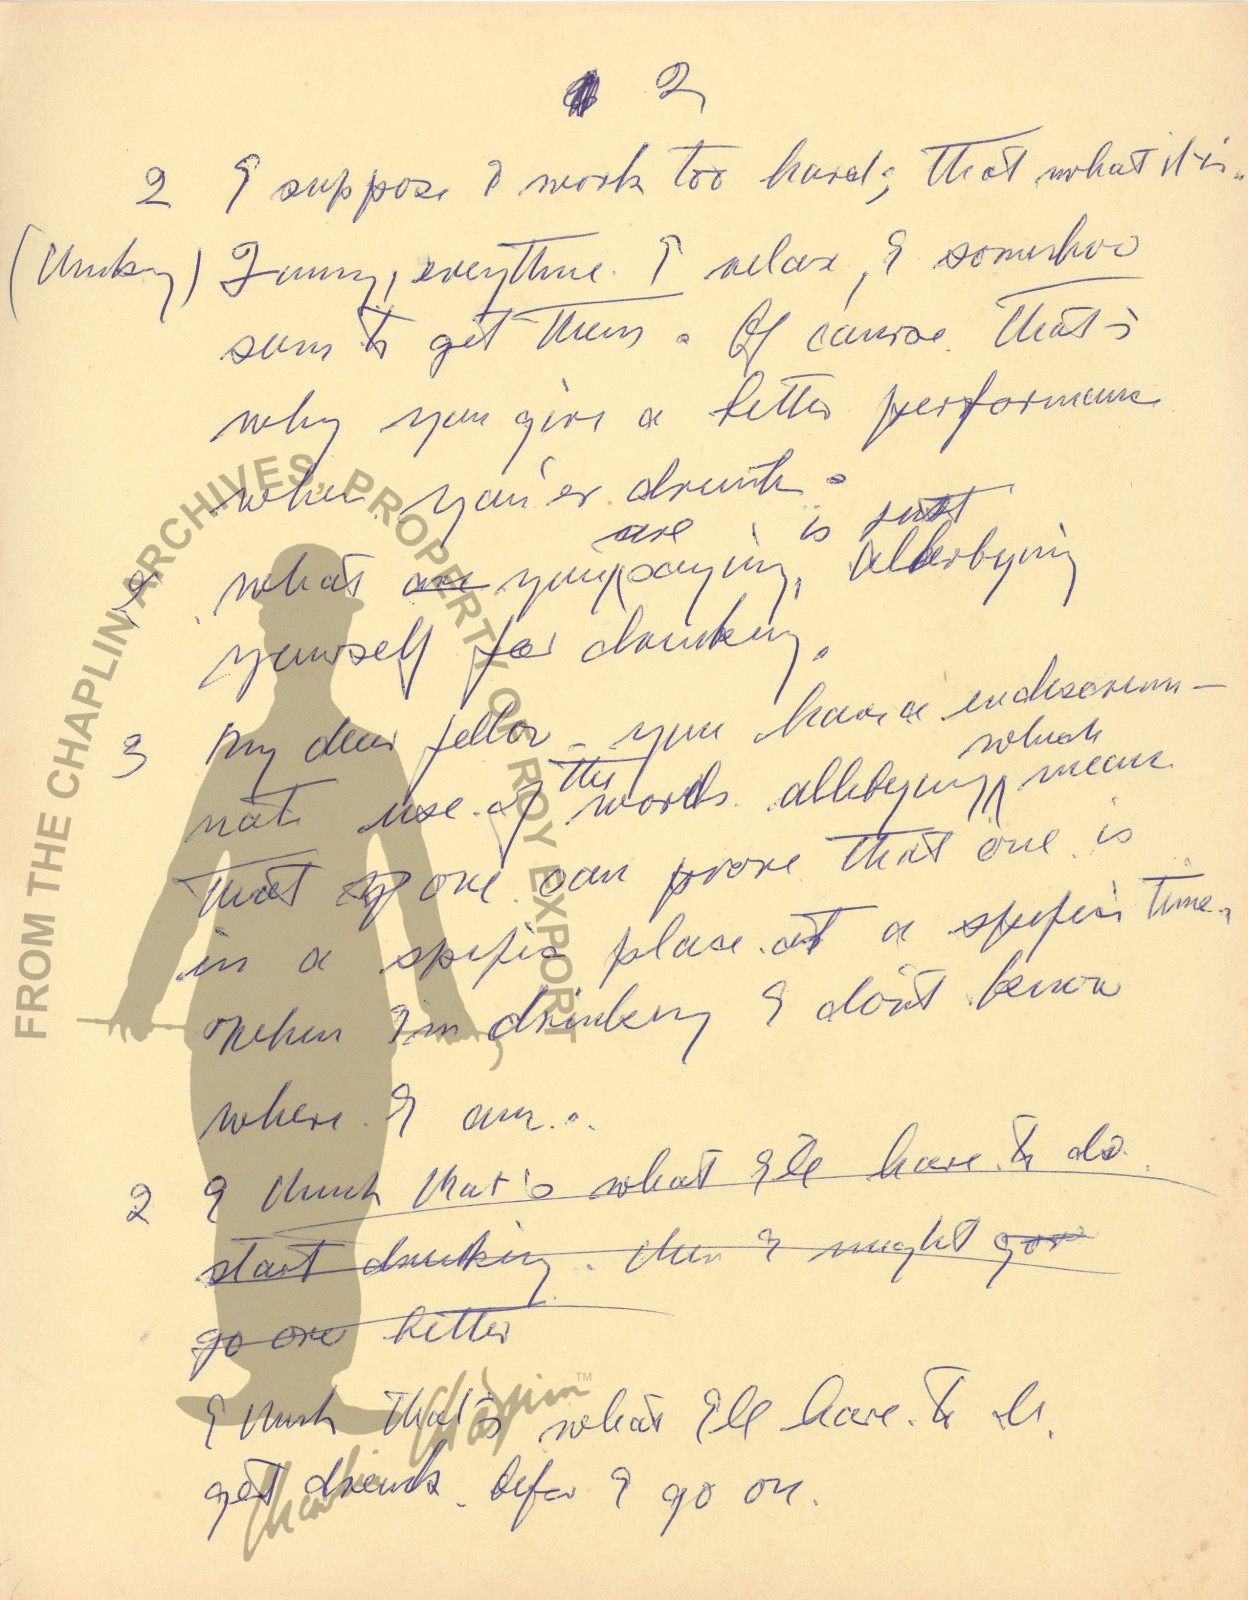 2
2 I suppose I work too hard; that what it is.
(thinking) Funny, everytime I relax, I somehow
seem to get them. Of course that's
why you give a better performance
when you'er drunk.
are is just
what are you saying, allerbying
yourself for drinking.
3 My dear fellow - you have a indiscrim-
which
nate use of the words allebying, means
that if one can prove that one is
in a spefic place at a spefic time.
when I'm drinking I don't know
where I am..
2 I think that's what I'll have to do.
start drinking. then I might goo
go over better
I think that's what I'll have to do.
get drunk befor I go on.
FROM THE CHAPLIN ARCHIVES, PROPERTY OF ROY EXPORT
Charlie Chaplin™